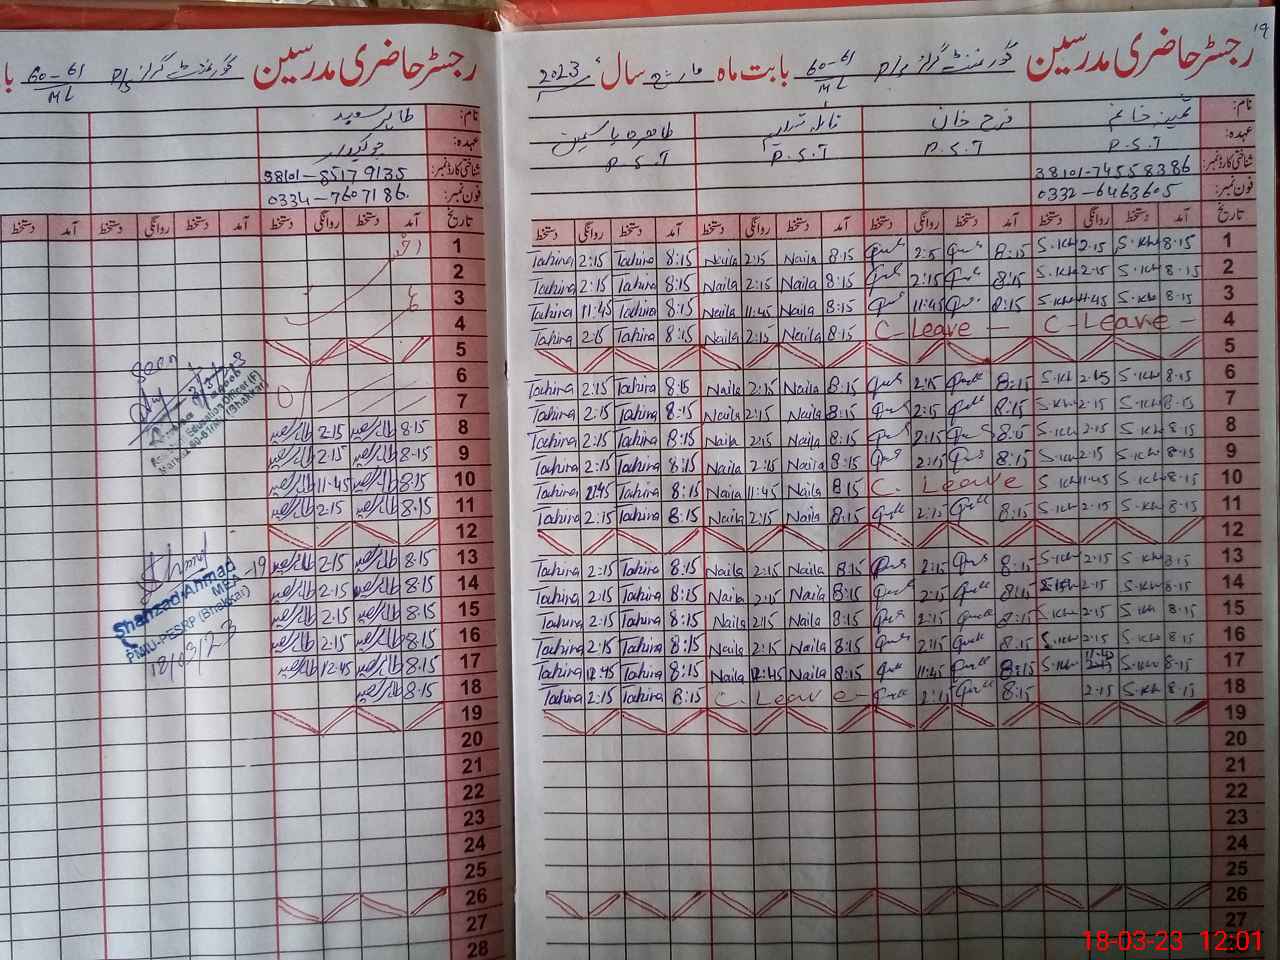 19
رجسٹر حاضری مدرسین گورنمنٹ گرلز P/S 60-61/ML بابت ماہ مارچ سال 2023ء
نام: ثمینہ خانم فرح خان نائلہ طاہرہ یاسمین
عہدہ: P.S.T P.S.T P.S.T P.S.T
شناختی کارڈ نمبر: 38101-74558386
فون نمبر: 0332-6463605
تاریخ آمد دستخط روانگی دستخط آمد دستخط روانگی دستخط آمد دستخط روانگی دستخط آمد دستخط روانگی دستخط
1 8:15 S.Kh 2:15 S.Kh 8:15 2:15 8:15 Naila 2:15 Naila 8:15 Tahira 2:15 Tahira
2 8:15 S.Kh 2:15 S.Kh 8:15 2:15 8:15 Naila 2:15 Naila 8:15 Tahira 2:15 Tahira
3 8:15 S.Kh 11:45 S.Kh 8:15 11:45 8:15 Naila 11:45 Naila 8:15 Tahira 11:45 Tahira
4 C-Leave - C-Leave - 8:15 Naila 2:15 Naila 8:15 Tahira 2:15 Tahira
5
6 8:15 S.Kh 2:15 S.Kh 8:15 2:15 8:15 Naila 2:15 Naila 8:15 Tahira 2:15 Tahira
7 8:15 S.Kh 2:15 S.Kh 8:15 2:15 8:15 Naila 2:15 Naila 8:15 Tahira 2:15 Tahira
8 8:15 S.Kh 2:15 S.Kh 8:15 2:15 8:15 Naila 2:15 Naila 8:15 Tahira 2:15 Tahira
9 8:15 S.Kh 2:15 S.Kh 8:15 2:15 8:15 Naila 2:15 Naila 8:15 Tahira 2:15 Tahira
10 8:15 S.Kh 11:45 S.Kh C. Leave 8:15 Naila 11:45 Naila 8:15 Tahira Tahira
11 8:15 S.Kh 2:15 S.Kh 8:15 2:15 8:15 Naila 2:15 Naila 8:15 Tahira 2:15 Tahira
12
13 8:15 S.Kh 2:15 S.Kh 8:15 2:15 8:15 Naila 2:15 Naila 8:15 Tahira 2:15 Tahira
14 8:15 S.Kh 2:15 S.Kh 8:15 2:15 8:15 Naila 2:15 Naila 8:15 Tahira 2:15 Tahira
15 8:15 S.Kh 2:15 S.Kh 8:15 2:15 8:15 Naila 2:15 Naila 8:15 Tahira 2:15 Tahira
16 8:15 S.Kh 2:15 S.Kh 8:15 2:15 8:15 Naila 2:15 Naila 8:15 Tahira 2:15 Tahira
17 8:15 S.Kh S.Kh 8:15 11:45 8:15 Naila 12:45 Naila 8:15 Tahira 12:45 Tahira
18 8:15 S.Kh 2:15 8:15 2:15 C. Leave - 8:15 Tahira 2:15 Tahira
19
20
21
22
23
24
25
26
27
رجسٹر حاضری مدرسین گورنمنٹ گرلز P/S 60-61/ML با
نام: طاہر سعید
عہدہ: چوکیدار
شناختی کارڈ نمبر: 38101-85179135
فون نمبر: 0334-7607186
تاریخ آمد دستخط روانگی دستخط آمد دستخط روانگی دستخط آمد دستخط
1
2
3
4
5
6
7
8 8:15 طاہر سعید 2:15 طاہر سعید
9 8:15 طاہر سعید 2:15 طاہر سعید
10 8:15 طاہر سعید 11:45 طاہر سعید
11 8:15 طاہر سعید 2:15 طاہر سعید
12
13 8:15 طاہر سعید 2:15 طاہر سعید
14 8:15 طاہر سعید 2:15 طاہر سعید
15 8:15 طاہر سعید 2:15 طاہر سعید
16 8:15 طاہر سعید 2:15 طاہر سعید
17 8:15 طاہر سعید 12:45 طاہر سعید
18 8:15 طاہر سعید
19
20
21
22
23
24
25
26
27
28
Seen
Education Officer (F)
Shahzad Ahmad
MEA -19
PMIU-PESRP (Bhakkar)
18/03/23
18-03-23 12:01